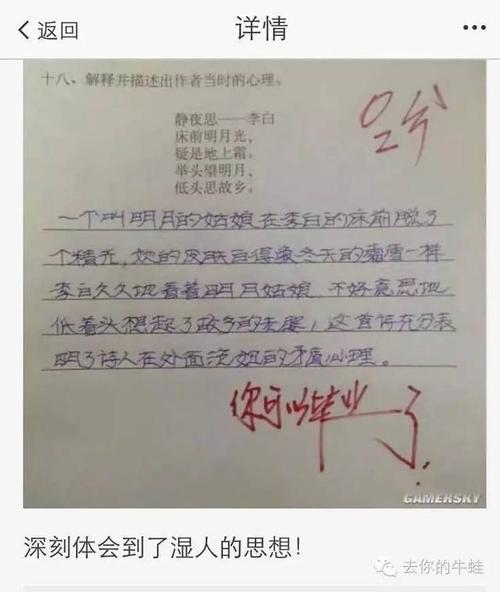 返回
详情
十八、解释并描述出作者当时的心理、
静夜思——李白
床前明月光，
疑是地上霜。
举头望明月，
低头思故乡。
0分
一个叫明月的姑娘在李白的床前脱了
个精光，她的皮肤白得象冬天的霜雪一样
李白久久地看着明月姑娘，不好意思地
低着头想起了故乡的老婆，这首诗充分表
明了诗人在外面流妞的矛盾心理。
你可以毕业了
GAMERSKY
深刻体会到了湿人的思想！
去你的牛蛙